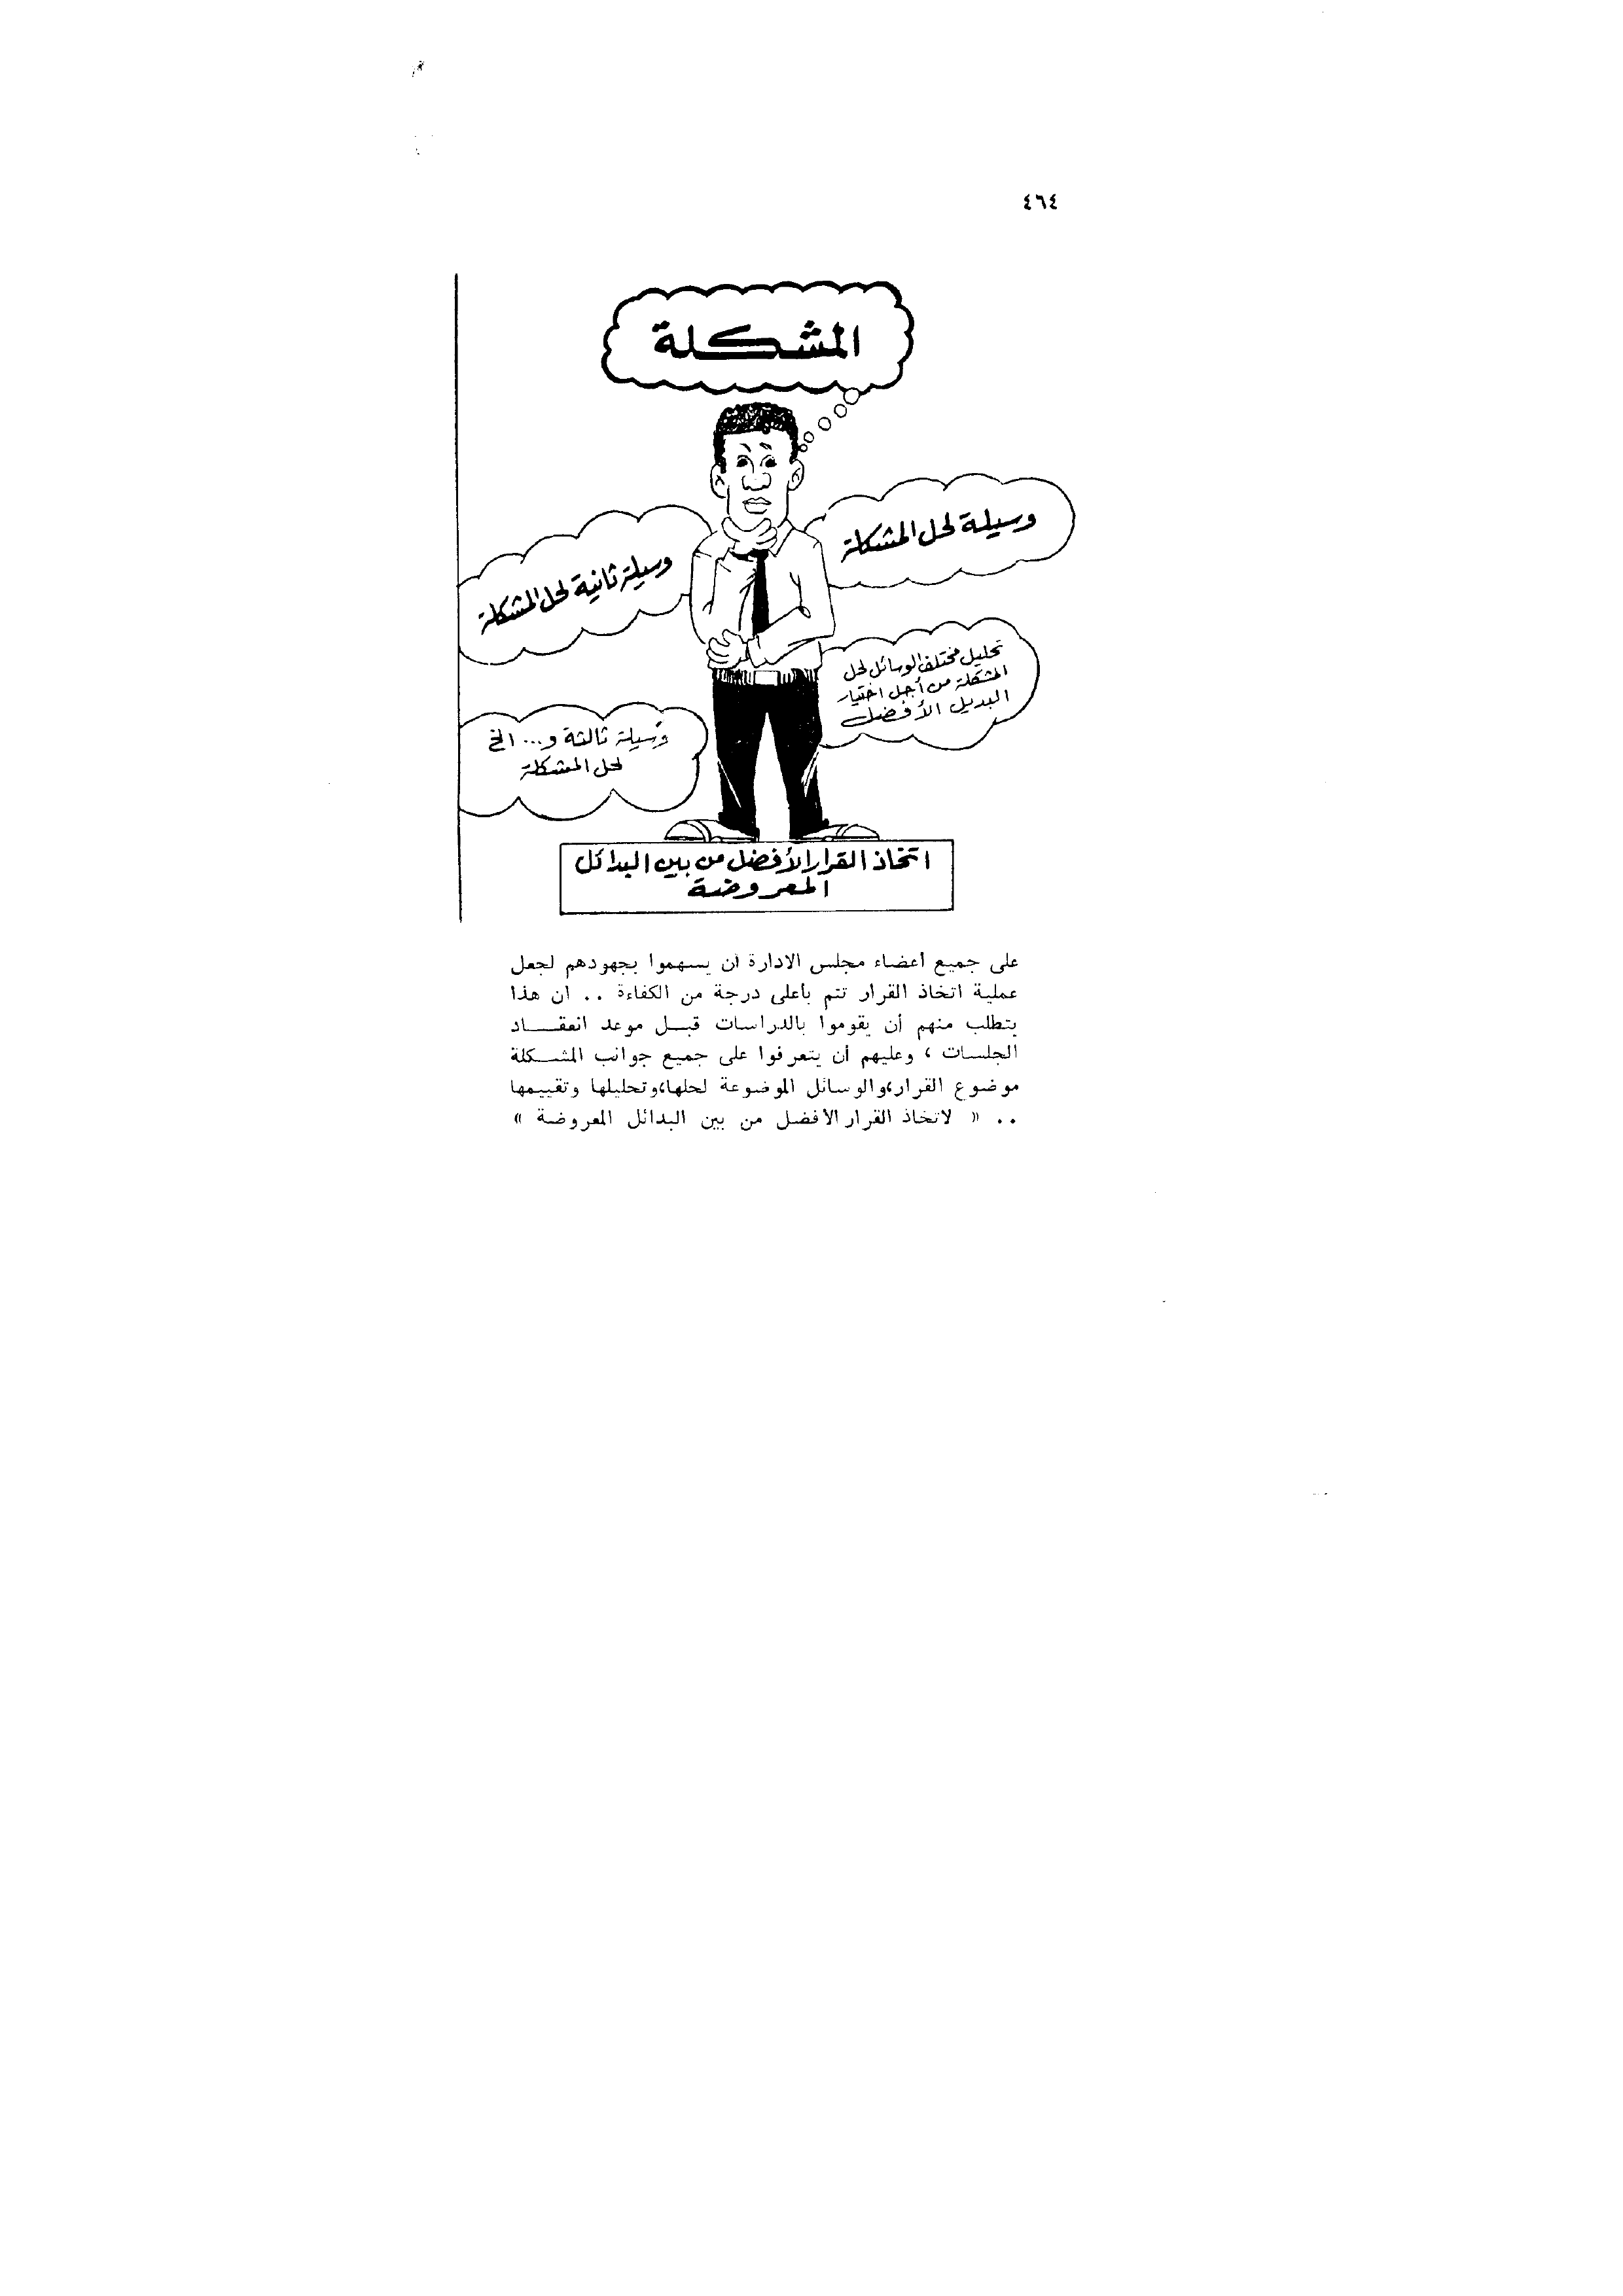 ٤٦٤
المشكلة
وسيلة لحل المشكلة
وسيلة ثانية لحل المشكلة
تحليل مختلف الوسائل لحل
المشكلة من أجل اختيار
البديل الأفضل
وسيلة ثالثة و... الخ
لحل المشكلة
اتخاذ القرار الأفضل من بين البدائل
المعروضة
على جميع أعضاء مجلس الادارة أن يسهموا بجهودهم لجعل
عملية اتخاذ القرار تتم بأعلى درجة من الكفاءة .. ان هذا
يتطلب منهم أن يقوموا بالدراسات قبل موعد انعقاد
الجلسات ، وعليهم أن يتعرفوا على جميع جوانب المشكلة
موضوع القرار،والوسائل الموضوعة لحلها،وتحليلها وتقييمها
.. « لاتخاذ القرار الأفضل من بين البدائل المعروضة »